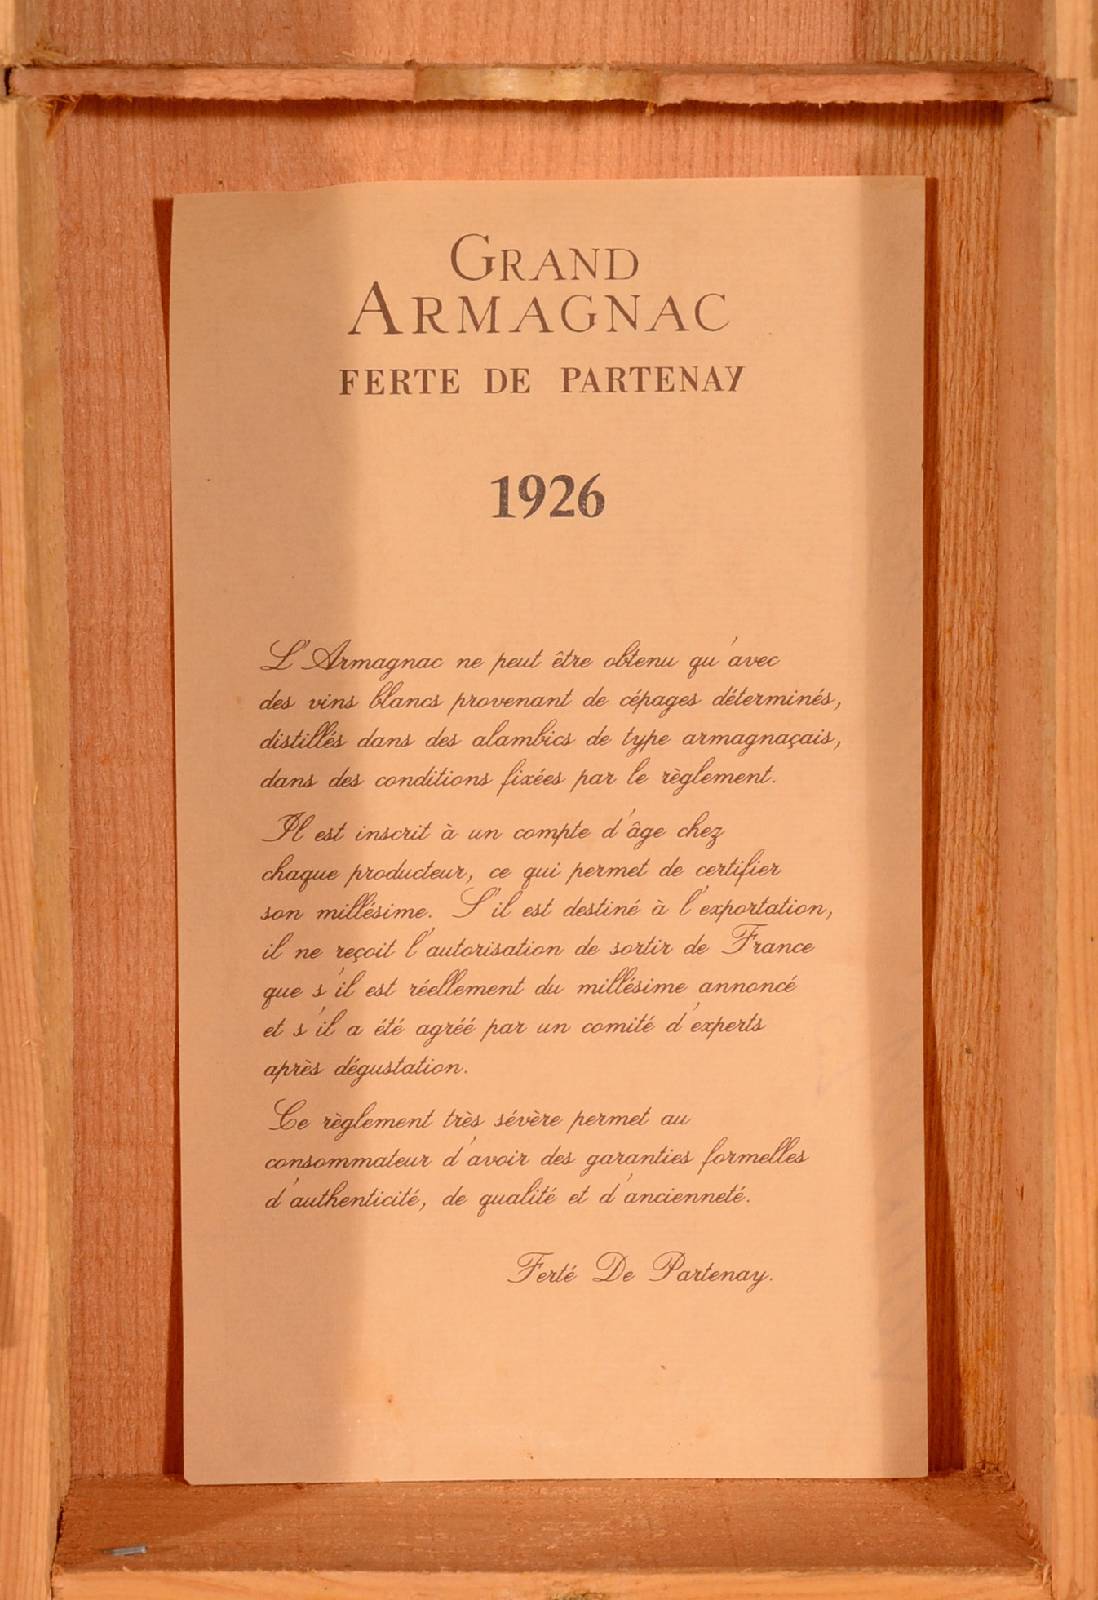 GRAND
ARMAGNAC
FERTE DE PARTENAY
1926
L'Armagnac ne peut être obtenu qu'avec
des vins blancs provenant de cépages déterminés,
distillés dans des alambics de type armagnaçais,
dans des conditions fixées par le règlement.
Il est inscrit à un compte d'âge chez
chaque producteur, ce qui permet de certifier
son millésime. S'il est destiné à l'exportation,
il ne reçoit l'autorisation de sortir de France
que s'il est réellement du millésime annoncé
et s'il a été agréé par un comité d'experts
après dégustation.
Ce règlement très sévère permet au
consommateur d'avoir des garanties formelles
d'authenticité, de qualité et d'ancienneté.
Ferté De Partenay.